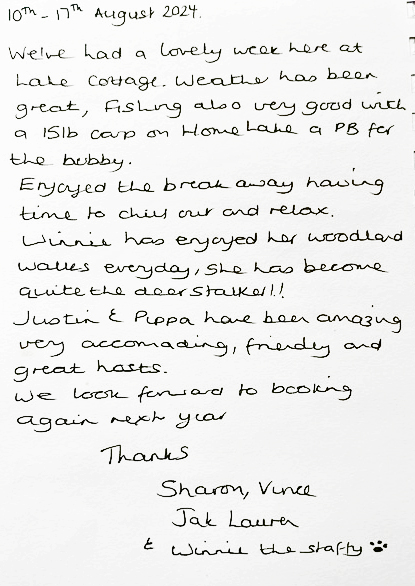 10TH - 17TH August 2024.
We've had a lovely week here at
Lake Cottage. Weathe has been
great, Fishing also very good with
a 15lb carp on Home Lake a PB for
the hubby.
Enjoyed the break away having
time to chill out and relax.
Winnie has enjoyed her woodland
walks everyday, she has become
quite the deer stalker!!
Justin & Pippa have been amazing
very accomading, friendly and
great hosts.
We look forward to booking
again next year
Thanks
Sharon, Vince
Jak Lauren
& Winnie the staffy